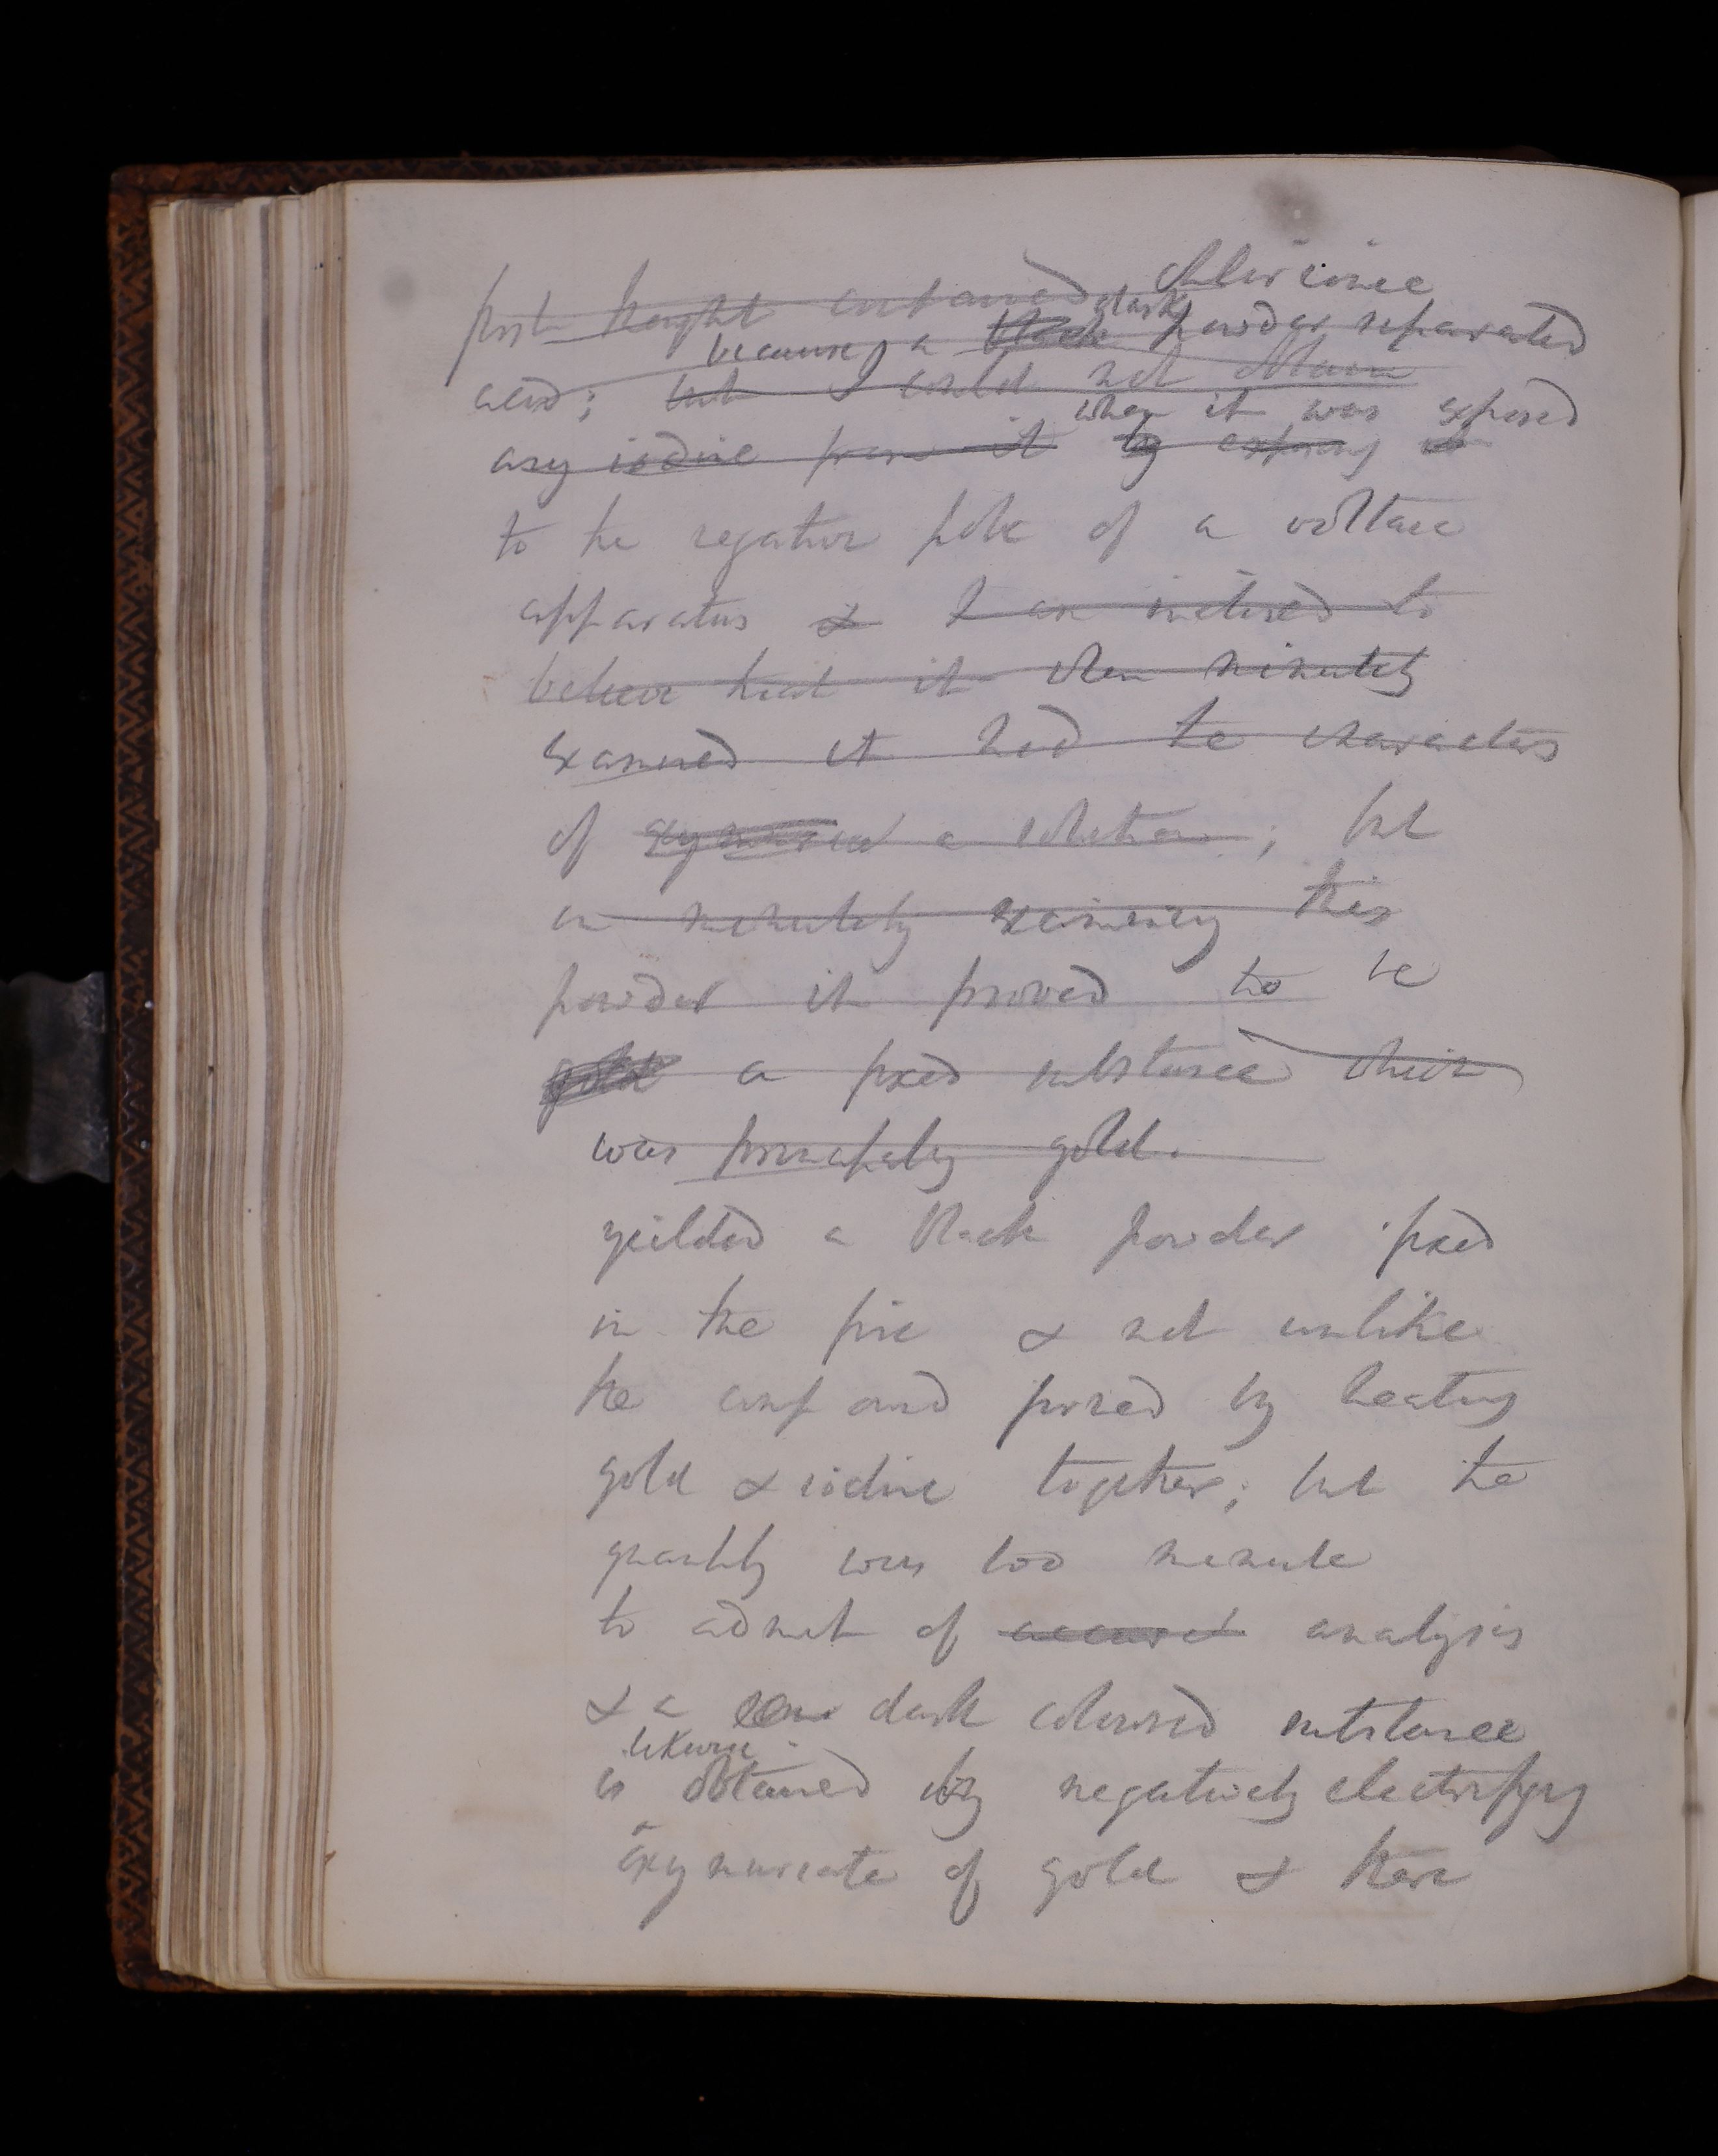 first thought contained chlorionic
because a black dark powder separated
acid; but I could not obtain
when it was exposed
any iodine from it by exposing it
to the negative pole of a voltaic
apparatus & I am inclined to
believe that it when minutely
examined it had the characters
of oxymuriat a solution; but
on minutely examining this
powder it proved to be
gold a fixed substance which
was principally gold.
yeilded a black powder fixed
in the fire & not unlike
the compound formed by heating
gold & iodine together; but the
quantity was too minute
to admit of accurat analysis
& a dark coloured substance
likewise
is obtained by negatively electrifying
oxymuriate of gold & there